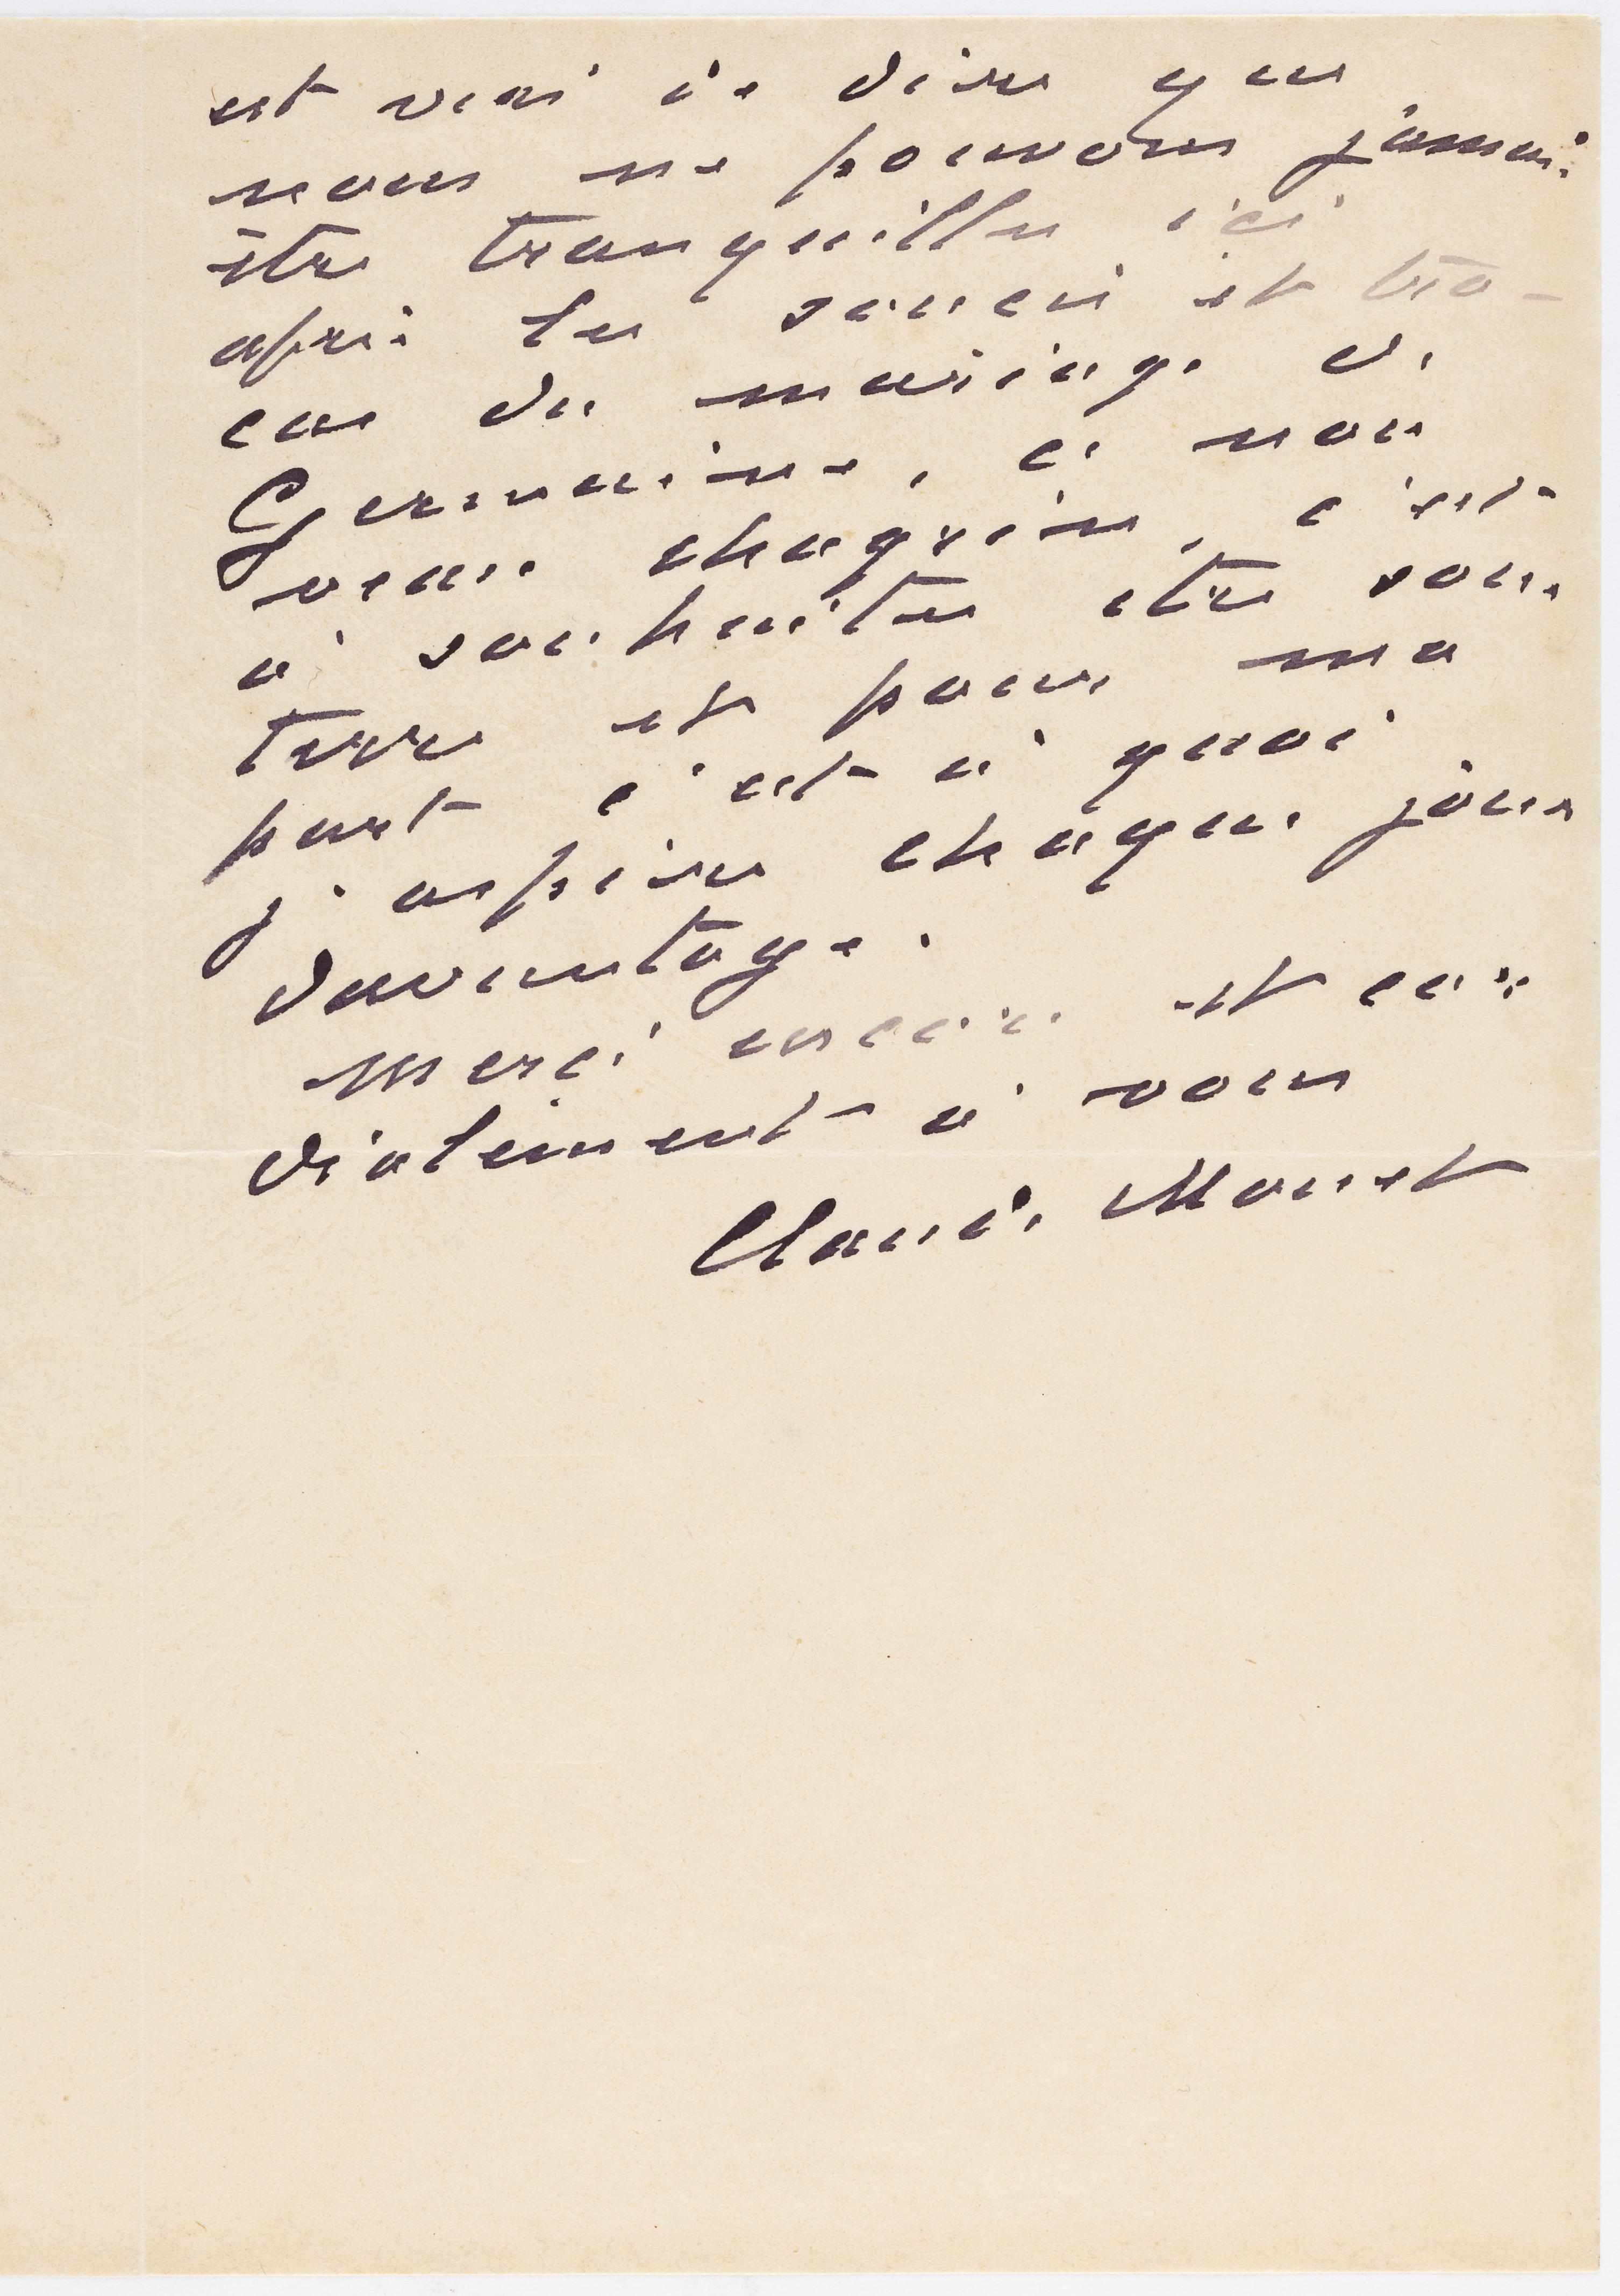 est vrai de dire que
nous ne pouvons jamais
être tranquilles ici
après les soucis et tra-
cas du mariage de
Germaine, ce nou
veau chagrin, c'est
à souhaiter être sous
terre et pour ma
part c'est à quoi
j'aspire chaque jour
davantage.
Merci encore et cor
dialement à vous
Claude Monet